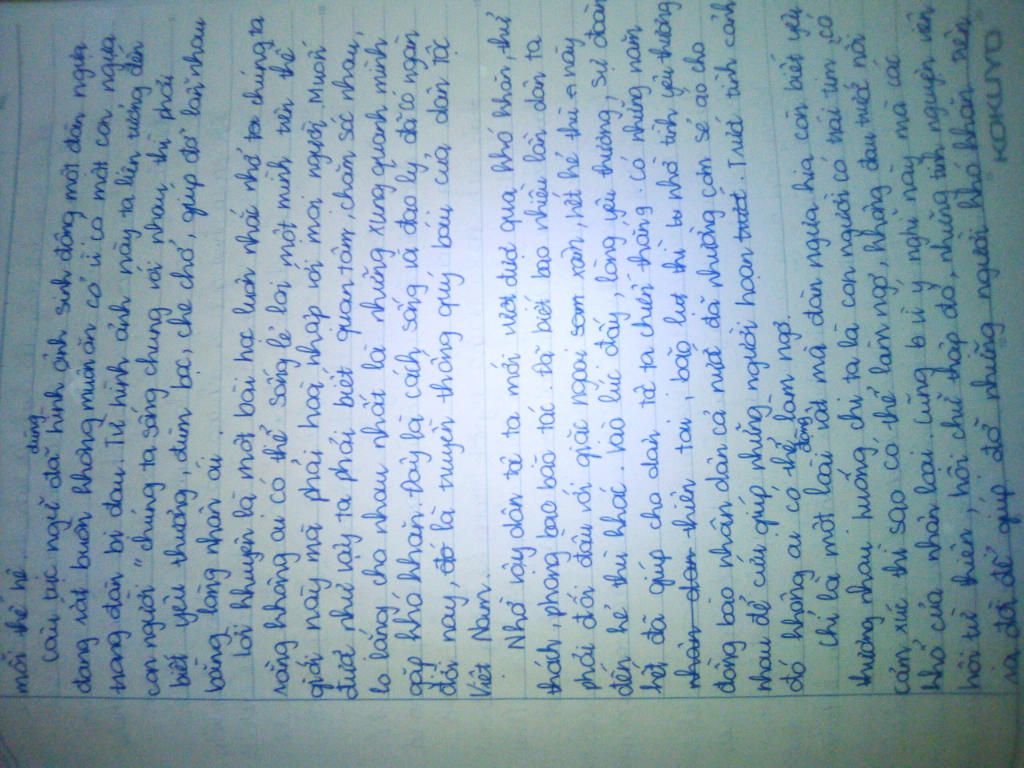 mỗi thế hệ.
Câu tục ngữ đã dùng hình ảnh sinh động một đàn ngựa
đang rất buồn không muốn ăn cỏ vì có một con ngựa
trong đàn bị đau. Từ hình ảnh này ta liên tưởng đến
con người "chúng ta sống chung với nhau thì phải
biết yêu thương, đùm bọc, che chở, giúp đỡ lẫn nhau
bằng lòng nhân ái.
Lời khuyên là một bài học luôn nhắc nhở ta chúng ta
rằng không ai có thể sống lẻ loi một mình trên thế
giới này mà phải hoà nhập với mọi người. Muốn
được như vậy ta phải biết quan tâm, chăm sóc nhau,
lo lắng cho nhau nhất là những xung quanh mình
gặp khó khăn. Đây là cách sống và đạo lý đã có ngàn
đời nay, đó là truyền thống quý báu của dân tộc
Việt Nam.
Nhờ vậy dân tộc ta mới vượt được qua khó khăn, thử
thách, phong bao bão táp. Đã biết bao nhiêu lần dân ta
phải đối đầu với giặc ngoại xâm, hết kẻ thù này
đến kẻ thù khác. Vào lúc đấy, lòng yêu thương, sự đoàn
kết đã giúp cho dân tộc ta chiến thắng. Có những năm
thiên tai, bão lụt thì nhờ tình yêu thương
đồng bào nhân dân cả nước đã nhường cơm sẻ áo cho
nhau để cứu giúp những người hoạn trước. Trước tình cảnh
đó không ai có thể làm ngơ.
Chỉ là một loài động vật mà đàn ngựa kia còn biết yêu
thương nhau huống chi ta là con người có trái tim có
cảm xúc thì sao có thể làm ngơ, không đau trước nỗi
khổ của nhân loại. Cũng bởi vì ý nghĩ này mà các
hội từ thiện, hội chữ thập đỏ, những tình nguyện viên
ra đời để giúp đỡ những người khó khăn trên
KOKUYO